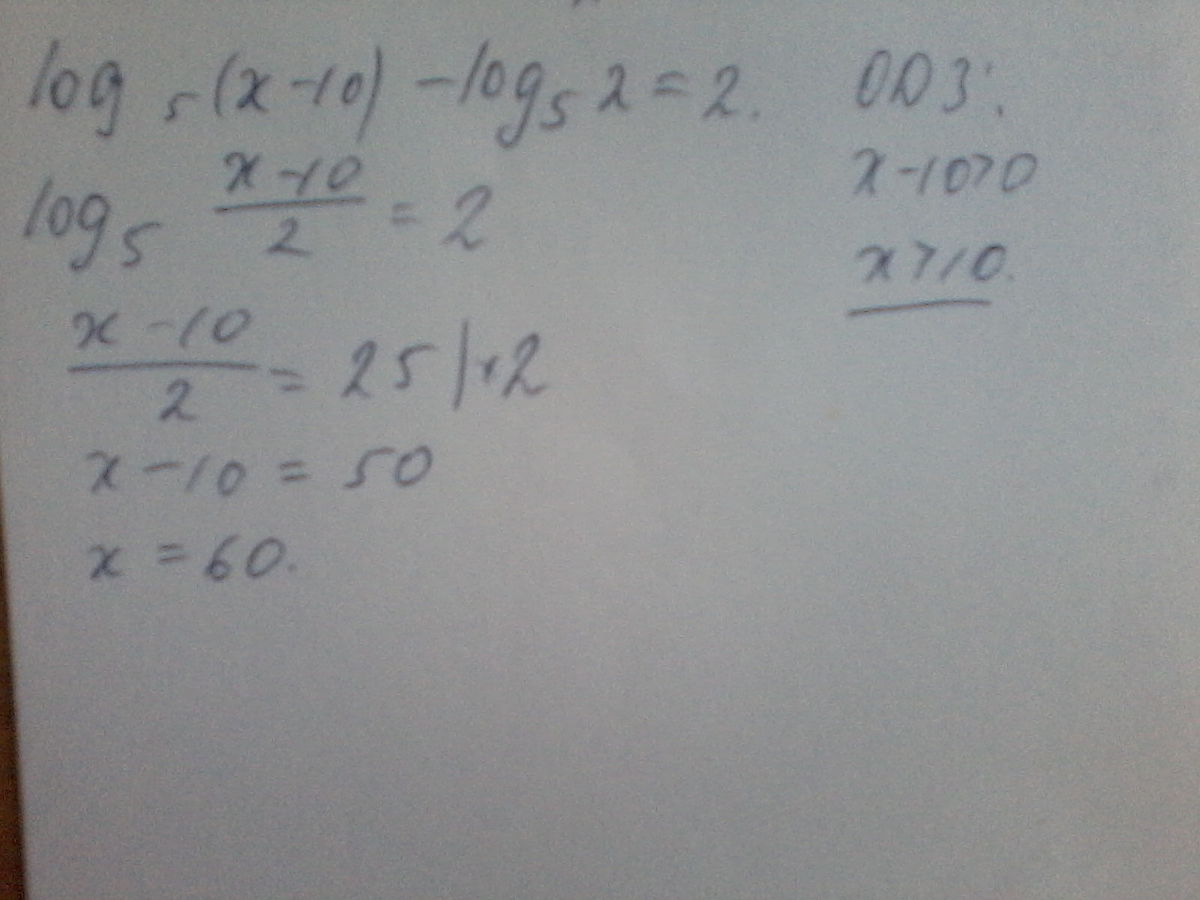 log₅(x-10) - log₅2 = 2.
log₅ (x-10)/2 = 2
(x-10)/2 = 25 |·2
x-10 = 50
x = 60.
ОДЗ:
x-10>0
x>10.